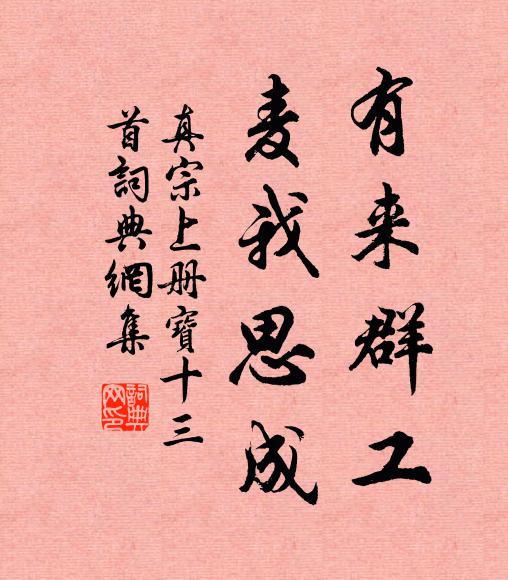 有来群工
麦我思成
真宗上册寶十三
首詞典網集
詞典
网印